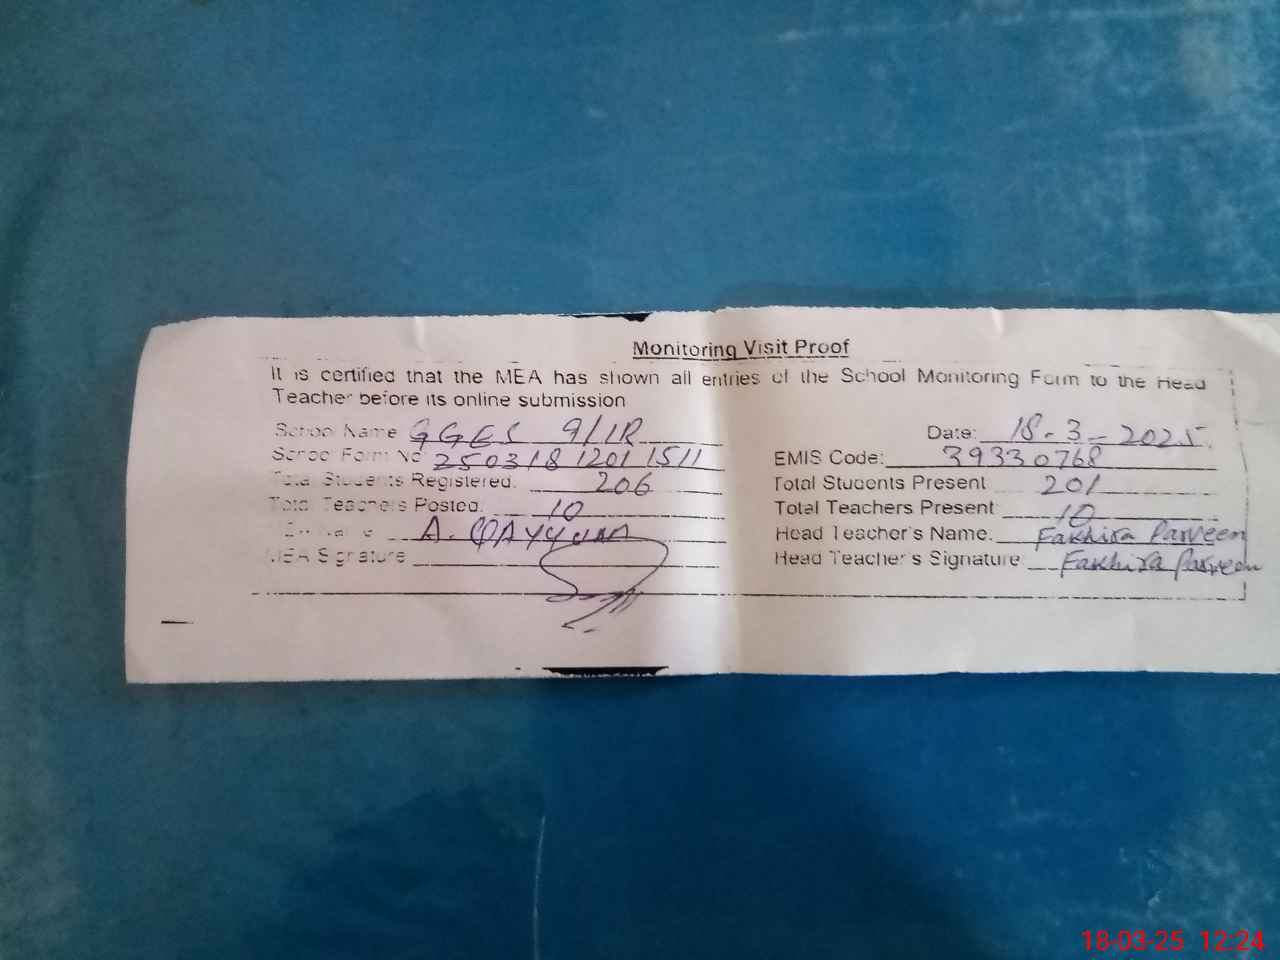 Monitoring Visit Proof
It is certified that the MEA has shown all entries of the School Monitoring Form to the Head
Teacher before its online submission
School Name GGES 9/11R Date: 18-3-2025
School Form No 250318 1201 1511 EMIS Code: 39330768
Total Students Registered: 206 Total Students Present 201
Total Teachers Posted: 10 Total Teachers Present 10
Name A. QAYYUM Head Teacher's Name: Fakhira Parveen
MEA Signature Head Teacher's Signature Fakhira Parveen
18-03-25 12:24